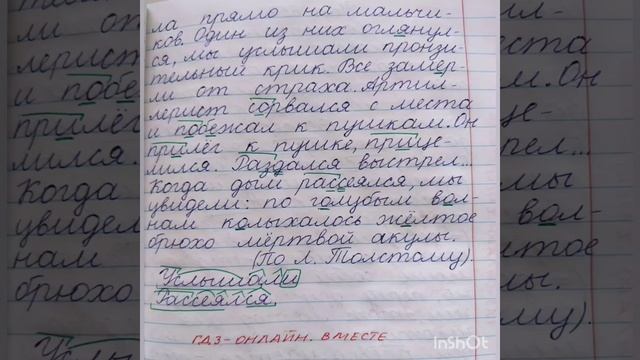 ла прямо на мальчи-
ков. Один из них оглянул-
ся, мы услышали пронзи-
тельный крик. Все замер-
ли от страха. Артил-
лерист сорвался с места
и побежал к пушкам. Он
прилёг к пушке, прице-
лился. Раздался выстрел...
Когда дым рассеялся, мы
увидели: по голубым вол-
нам колыхалось жёлтое
брюхо мёртвой акулы.
(По Л. Толстому).
Услышали
Рассеялся.
ГДЗ-ОНЛАЙН. ВМЕСТЕ
InShOt